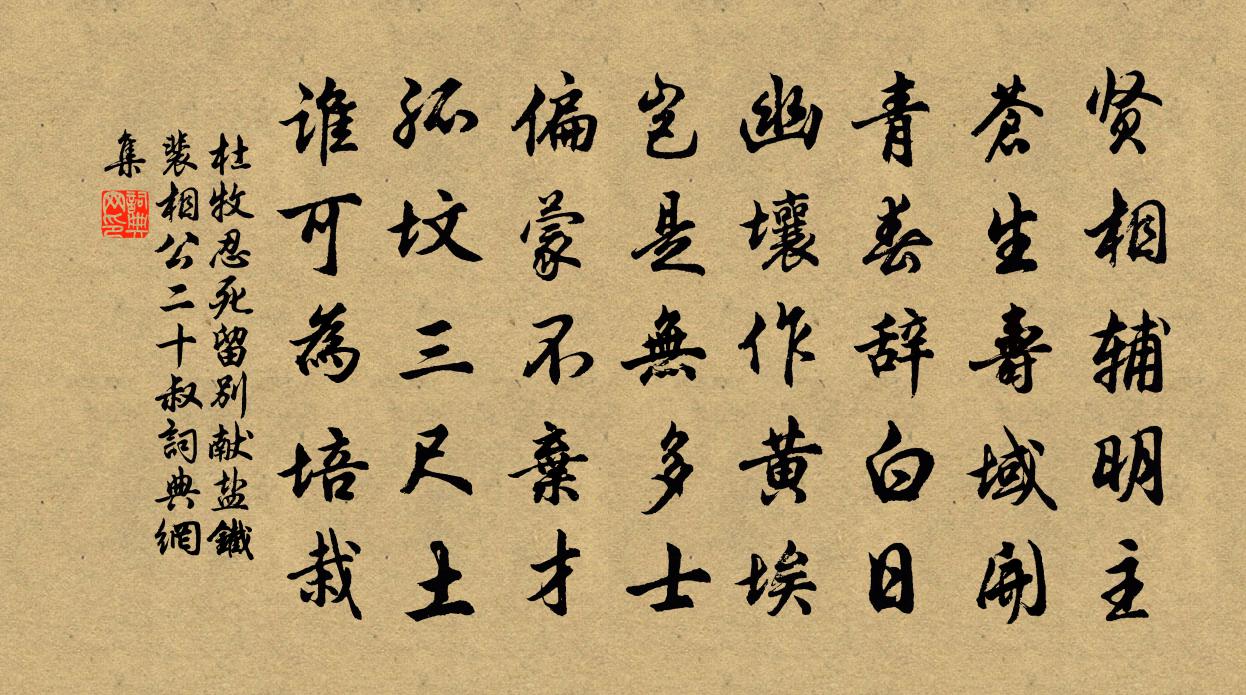 贤相辅明主
苍生寿域開
青春辞白日
幽壤作黄埃
岂是無多士
偏蒙不棄才
孤坟三尺土
谁可為培栽
杜牧忍死留别献盐鐵
裴相公二十叔詞典網
集
詞典
网印